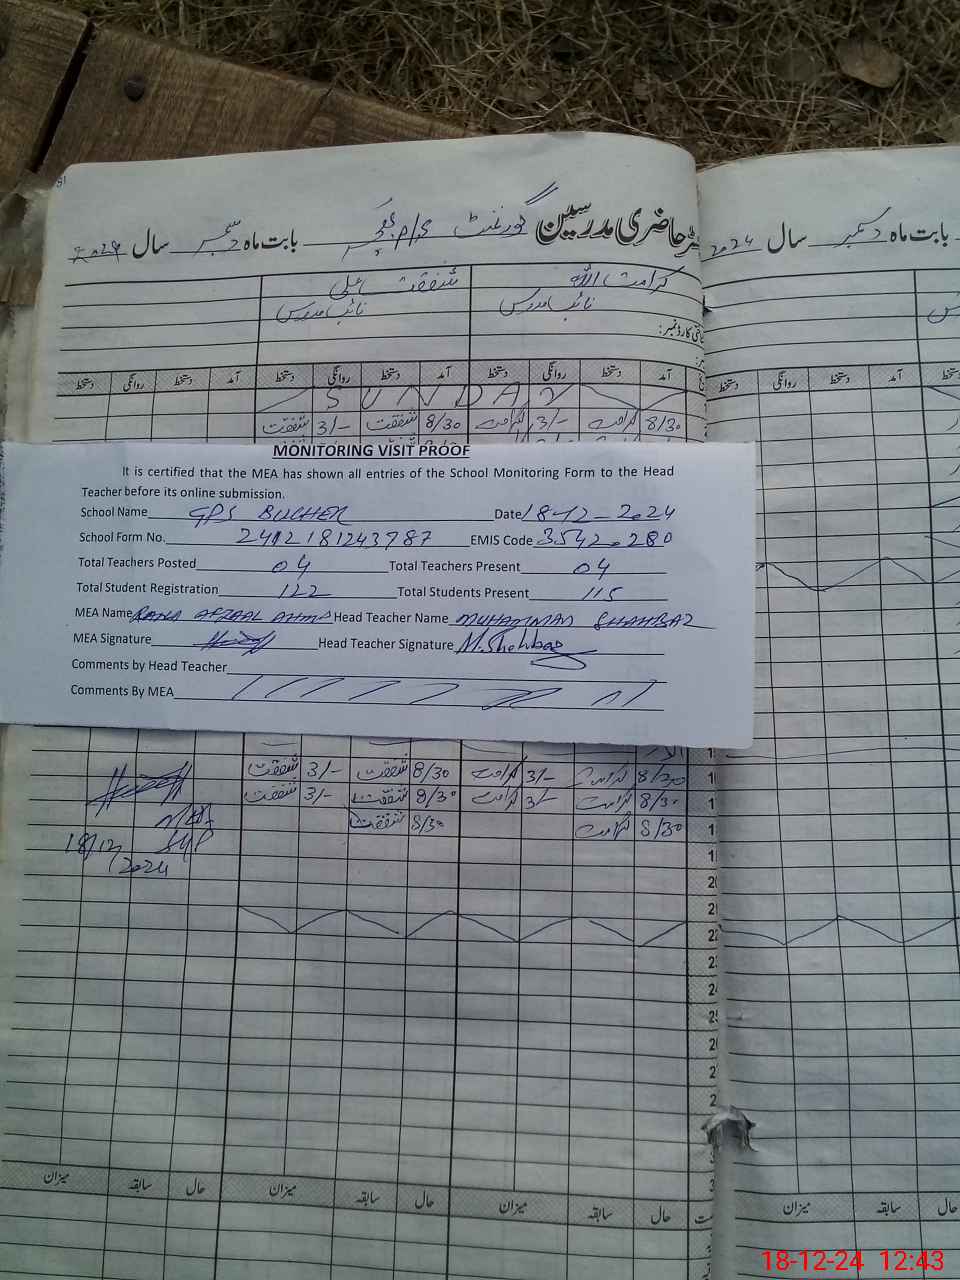 رجسٹر حاضری مدرسین گورنمنٹ بابت ماہ دسمبر سال 2024
بابت ماہ دسمبر سال 2024
کرامت اللہ شفقت علی
نائب مدرس نائب مدرس
آمد دستخط روانگی دستخط آمد دستخط روانگی دستخط آمد دستخط روانگی دستخط
آمد دستخط روانگی دستخط
SUNDAY
8/30 کرامت 3/- کرامت 8/30 شفقت 3/- شفقت
MONITORING VISIT PROOF
It is certified that the MEA has shown all entries of the School Monitoring Form to the Head
Teacher before its online submission.
School Name GPS BUCHER Date 18-12-2024
School Form No. 2412181243787 EMIS Code 3542.280
Total Teachers Posted 04 Total Teachers Present 04
Total Student Registration 122 Total Students Present 115
MEA Name RANA AFZAAL AHMD Head Teacher Name MUHAMMAD SHAHBAZ
MEA Signature Head Teacher Signature M.Shahbaz
Comments by Head Teacher
Comments By MEA
8/30 کرامت 3/- کرامت 8/30 شفقت 3/- شفقت
8/30 کرامت 3/- کرامت 8/30 شفقت 3/- شفقت
8/30 کرامت 8/30 شفقت
MEA
18/12/2024
21
22
حال سابقہ میزان حال سابقہ میزان حال سابقہ میزان
حال سابقہ میزان
18-12-24 12:43